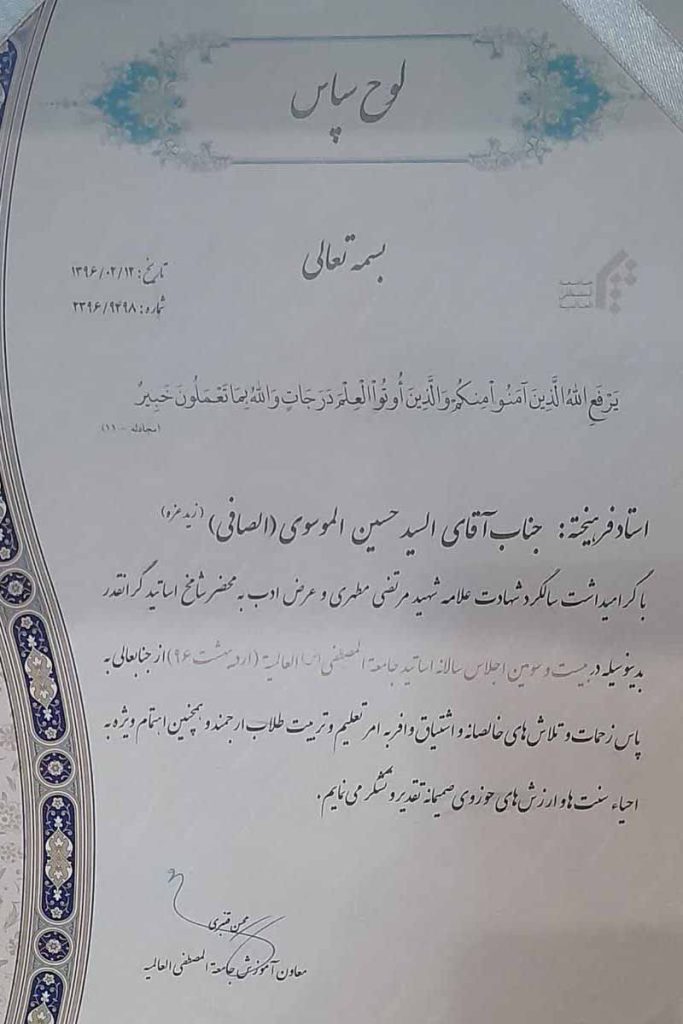 لوح سپاس
بسمه تعالی
تاریخ: ۱۳۹۶/۰۲/۱۲
شماره: ۲۳۹۶/۹۴۹۸
جامعة
المصطفی
العالمیة
يَرْفَعِ اللهُ الَّذِينَ آمَنُواْ مِنكُمْ وَالَّذِينَ أُوتُواْ الْعِلْمَ دَرَجَاتٍ وَاللهُ بِمَا تَعْمَلُونَ خَبِيرٌ
(مجادله - ۱۱)
استاد فرهیخته: جناب آقای السید حسین الموسوی (الصافی) (زید عزه)
با گرامیداشت سالگرد شهادت علامه شهید مرتضی مطهری و عرض ادب به محضر شامخ اساتید گرانقدر
بدینوسیله در بیست و سومین اجلاس سالانه اساتید جامعة المصطفی (ص) العالمیة (اردیبهشت ۹۶) از جنابعالی به
پاس زحمات و تلاش های خالصانه و اشتیاق وافر به امر تعلیم و تربیت طلاب ارجمند و همچنین اهتمام ویژه به
احیاء سنت ها و ارزش های حوزوی صمیمانه تقدیر و تشکر می نمایم.
محسن قنبری
معاون آموزش جامعة المصطفی العالمیه